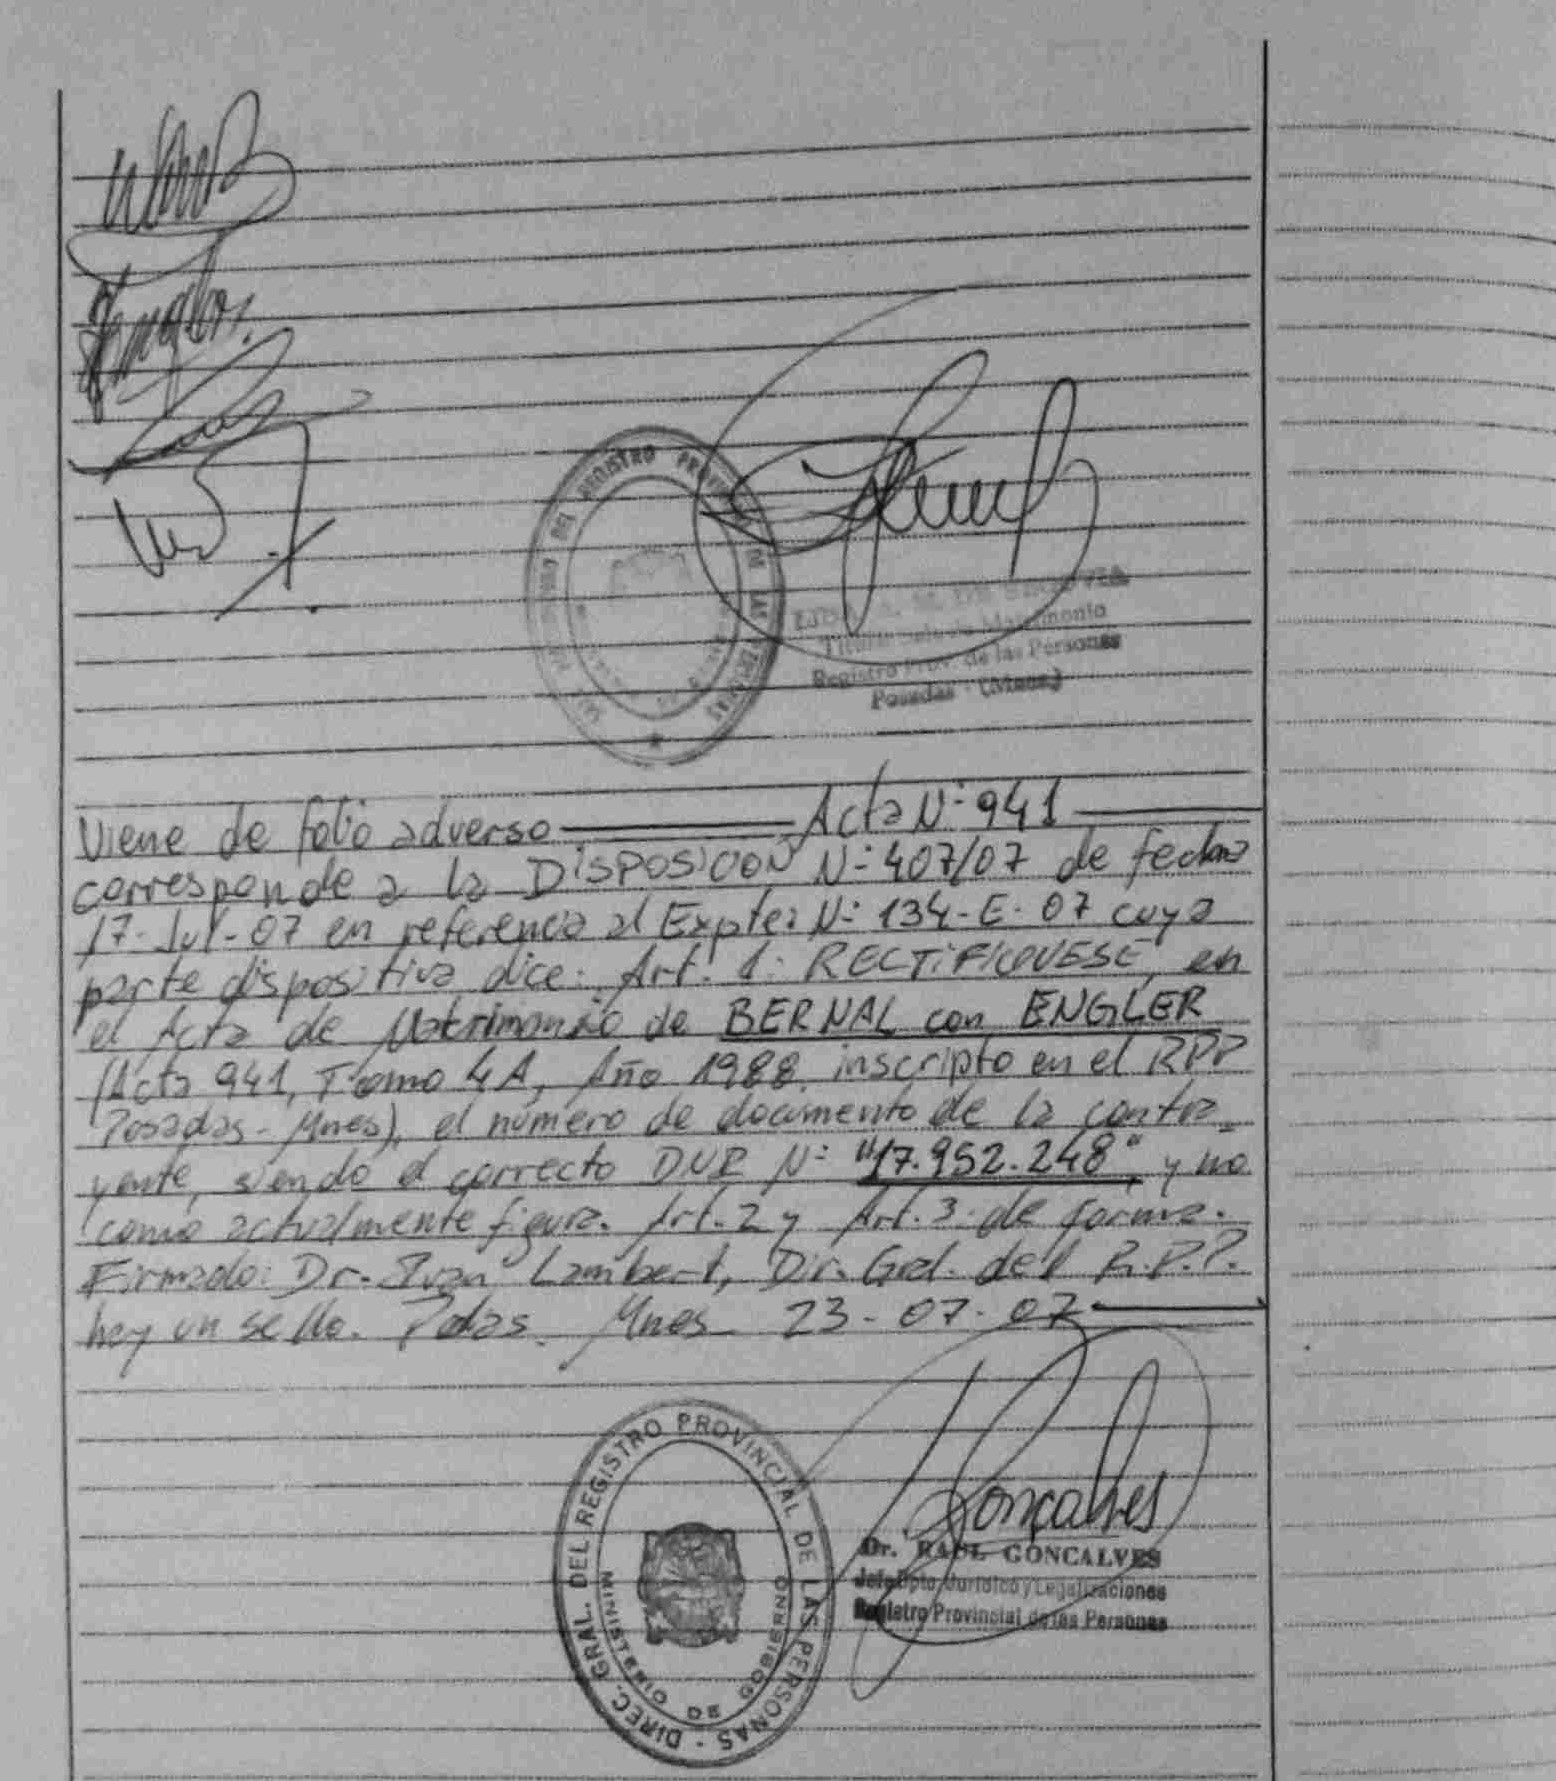 REGISTRO PROVINCIAL DE LAS PERSONAS
Matrimonio
Registro Prov. de las Personas
Posadas - (Mnes)
Viene de folio adverso ——— Acta N: 941 ———
corresponde a la DISPOSICION N: 407/07 de fecha
17-Jul-07 en referencia al Expte: N: 134-E-07 cuya
parte dispositiva dice: Art. 1: RECTIFIQUESE, en
el Acta de Matrimonio de BERNAL con ENGLER
(Acta 941, Tomo 4A, Año 1988, inscripto en el RPP
Posadas - Mnes), el número de documento de la contra_
yente, siendo el correcto DNI N: "17.952.248", y no
como actualmente figura. Art. 2 y Art. 3: de forma.
Firmado: Dr. Ivan Lambert, Dir. Gral. del R.P.P.
hay un sello. Pdas. Mnes 23-07-07 ———
DIREC. GRAL. DEL REGISTRO PROVINCIAL DE LAS PERSONAS -
MINISTERIO DE GOBIERNO
Goncalves
Dr. RAUL GONCALVES
Jefe Dpto. Jurídico y Legalizaciones
Registro Provincial de las Personas